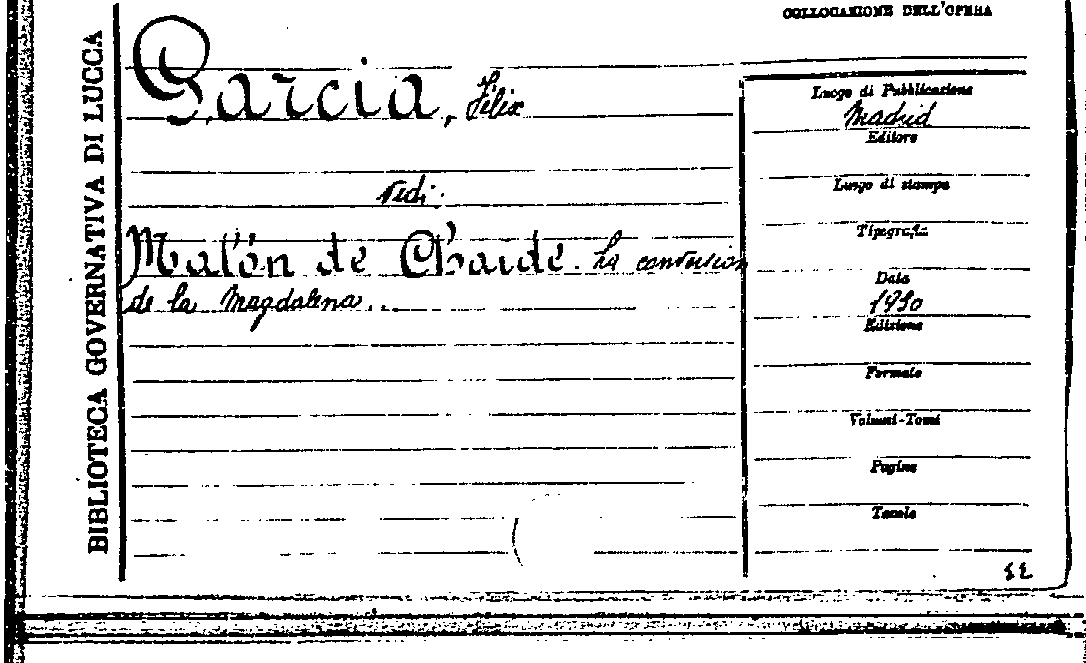 COLLOCAZIONE DELL'OPERA
BIBLIOTECA GOVERNATIVA DI LUCCA
Garcia, Félix
Vedi:
Malón de Chaide. La conversion
de la Magdalena...
Luogo di Pubblicazione
Madrid
Editore
Luogo di stampa
Tipografia
Data
1930
Edizione
Formato
Volumi-Tomi
Pagine
Tavole